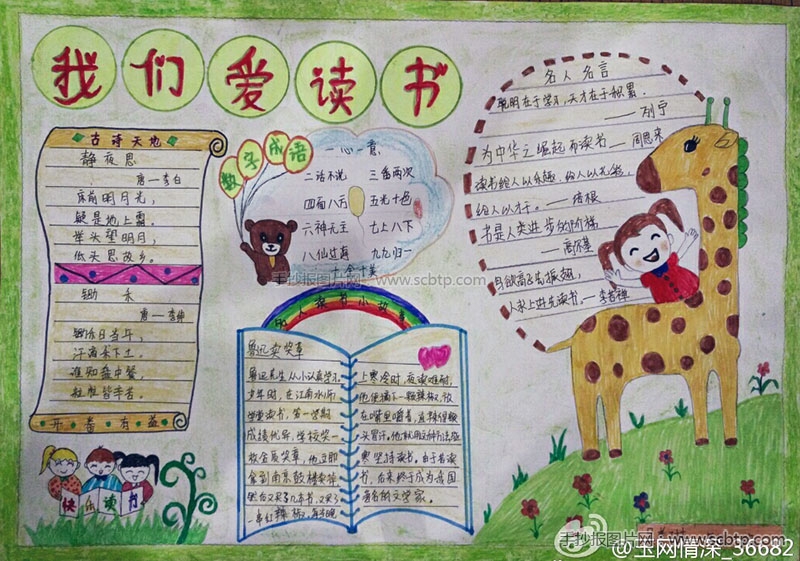 我们爱读书
古诗天地
静夜思
唐—李白
床前明月光，
疑是地上霜。
举头望明月，
低头思故乡。
锄禾
唐—李绅
锄禾日当午，
汗滴禾下土。
谁知盘中餐，
粒粒皆辛苦。
开卷有益
快乐读书
数字成语
一心一意
二话不说 三番两次
四面八方 五光十色
六神无主 七上八下
八仙过海 九九归一
十全十美
名人读书小故事
鲁迅卖奖章
鲁迅先生从小认真学习。
少年时，在江南水师
学堂读书，第一学期
成绩优异，学校奖一
枚金质奖章，他立即
拿到南京鼓楼卖掉，
然后又买了几本书，又买了
一串红辣椒，每当晚
上寒冷时，夜读难耐，
他便摘下一颗辣椒，放
在嘴里嚼着，直辣得额
头冒汗。他就用这种办法驱
寒坚持读书，由于苦读
书，后来终于成为我国
著名的文学家。
名人名言
聪明在于学习，天才在于积累。
——列宁
为中华之崛起而读书——周恩来
读书给人以乐趣，给人以光彩，
给人以才干。——培根
书是人类进步的阶梯
——高尔基
鸟欲高飞先振翅，
人求上进先读书。—李苦禅
手抄报图片网 - www.scbtp.com
手抄报图片网 www.scbtp.com
@玉网情深_36682